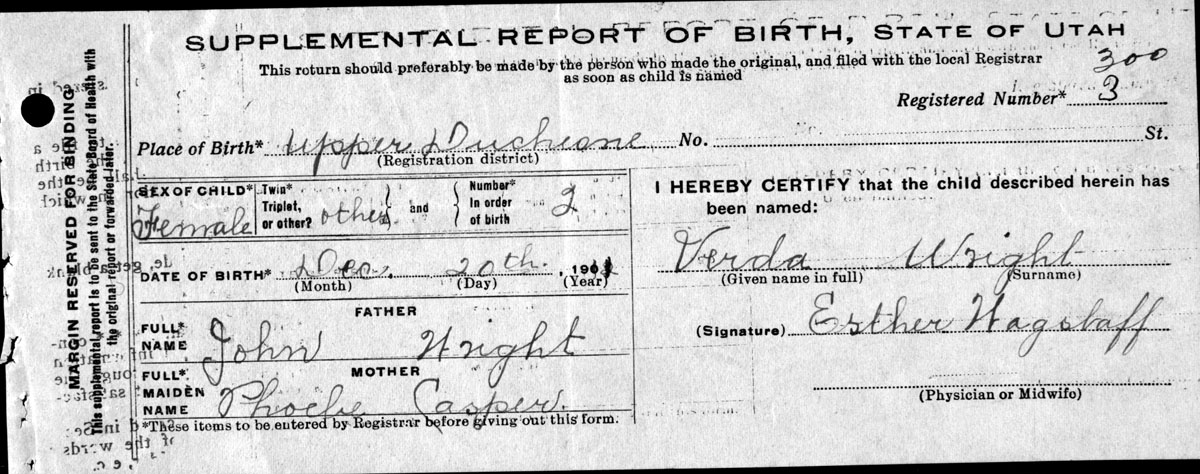 SUPPLEMENTAL REPORT OF BIRTH, STATE OF UTAH
This return should preferably be made by the person who made the original, and filed with the local Registrar
as soon as child is named
300
Registered Number* 3
Place of Birth* Upper Duchesne No. St.
(Registration district)
SEX OF CHILD* Female
Twin* Triplet, or other? other and Number* In order of birth 2
DATE OF BIRTH* Dec. 20th. , 190
(Month) (Day) (Year)
FATHER
FULL* NAME John Wright
MOTHER
FULL* MAIDEN NAME Phoebe Casper.
*These items to be entered by Registrar before giving out this form.
I HEREBY CERTIFY that the child described herein has
been named:
Verda Wright
(Given name in full) (Surname)
(Signature) Esther Wagstaff
(Physician or Midwife)
MARGIN RESERVED FOR BINDING
This supplemental report is to be sent to the State Board of Health with
the original report or forwarded later.